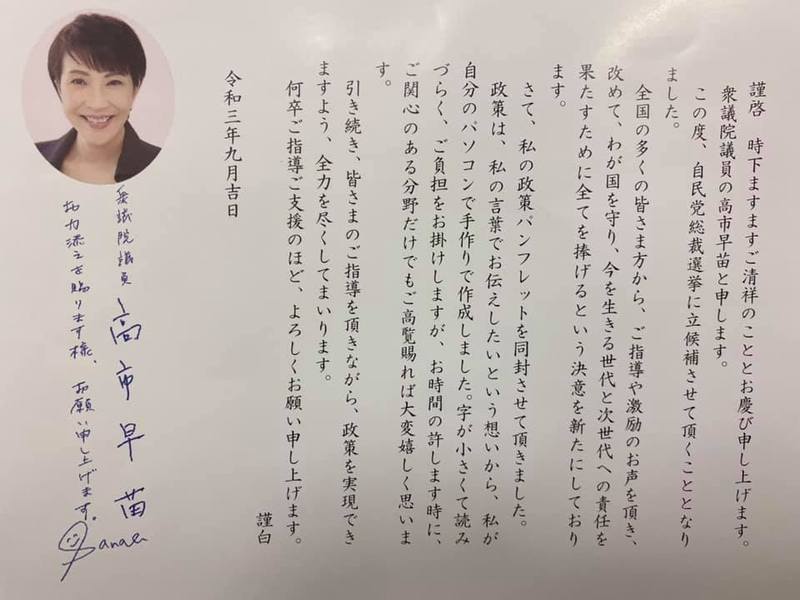 謹啓　時下ますますご清祥のこととお慶び申し上げます。
衆議院議員の高市早苗と申します。
この度、自民党総裁選挙に立候補させて頂くこととなり
ました。
全国の多くの皆さま方から、ご指導や激励のお声を頂き、
改めて、わが国を守り、今を生きる世代と次世代への責任を
果たすために全てを捧げるという決意を新たにしており
ます。
さて、私の政策パンフレットを同封させて頂きました。
政策は、私の言葉でお伝えしたいという想いから、私が
自分のパソコンで手作りで作成しました。字が小さくて読み
づらく、ご負担をお掛けしますが、お時間の許します時に、
ご関心のある分野だけでもご高覧賜れば大変嬉しく思いま
す。
引き続き、皆さまのご指導を頂きながら、政策を実現でき
ますよう、全力を尽くしてまいります。
何卒ご指導ご支援のほど、よろしくお願い申し上げます。
謹白
令和三年九月吉日
衆議院議員　高市早苗
お力添えを賜ります様、お願い申し上げます。
Sanae